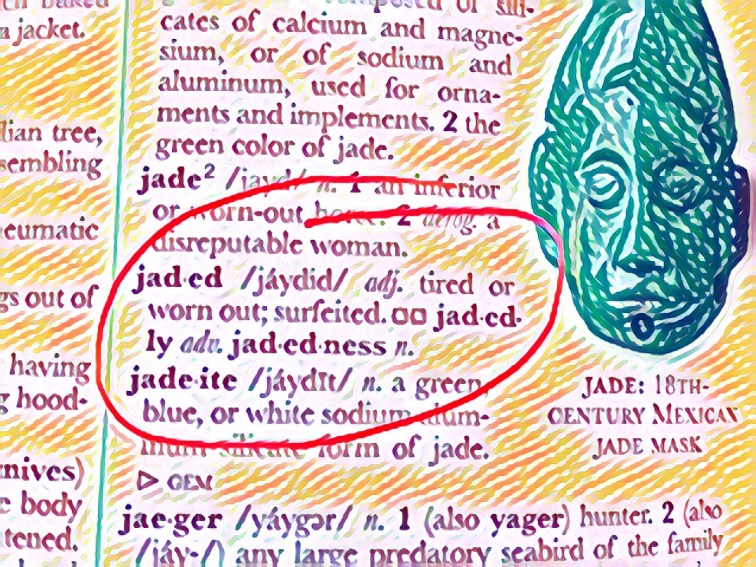 a jacket.
lian tree,
sembling
eumatic
gs out of
having
hood-
nives)
body
tened.
composed of sili-
cates of calcium and magne-
sium, or of sodium and
aluminum, used for orna-
ments and implements. 2 the
green color of jade.
jade² /jayd/ n. 1 an inferior
or worn-out horse. 2 derog. a
disreputable woman.
jad·ed /jáydid/ adj. tired or
worn out; surfeited. □□ jad·ed·
ly adv. jad·ed·ness n.
jade·ite /jáydīt/ n. a green,
blue, or white sodium alum-
inum silicate form of jade.
▷ GEM
jae·ger /yáygər/ n. 1 (also yager) hunter. 2 (also
/jáy-/) any large predatory seabird of the family
JADE: 18TH-
CENTURY MEXICAN
JADE MASK